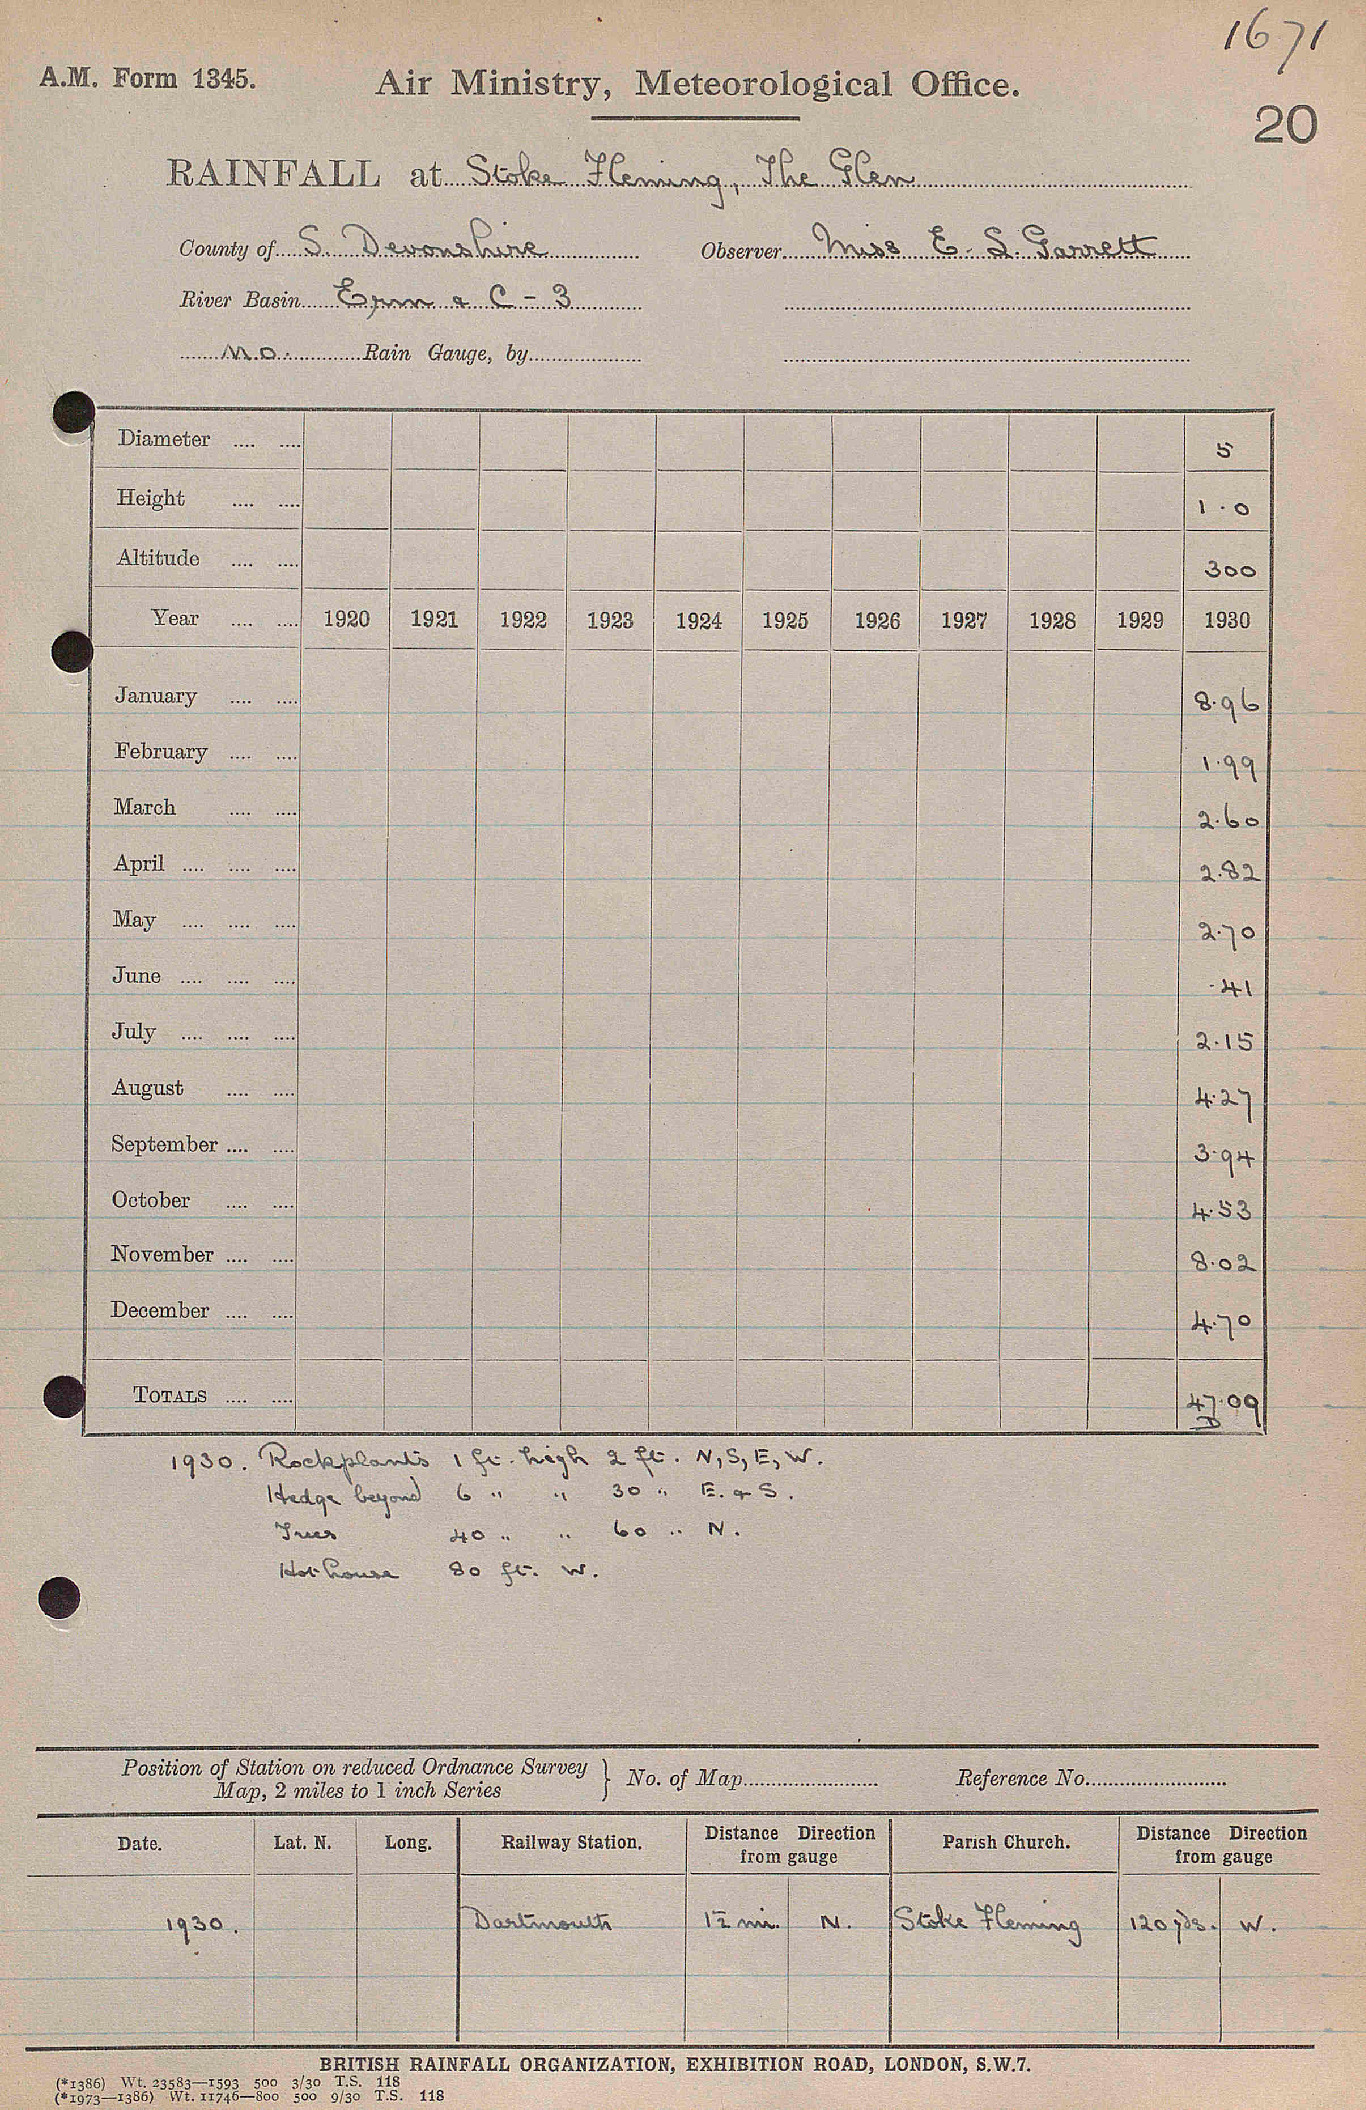 1671
A.M. Form 1345. Air Ministry, Meteorological Office.
20
RAINFALL at Stoke Fleming, The Glen
County of S. Devonshire Observer Miss E. S. Garrett
River Basin Erm & C - 3
M.O. Rain Gauge, by
Diameter .... .... 5
Height .... .... 1.0
Altitude .... .... 300
Year .... .... 1920 1921 1922 1923 1924 1925 1926 1927 1928 1929 1930
January .... .... 8.96
February .... .... 1.99
March .... .... 2.60
April .... .... .... 2.82
May .... .... .... 2.70
June .... .... .... .41
July .... .... .... 2.15
August .... .... 4.27
September .... .... 3.94
October .... .... 4.53
November .... .... 8.02
December .... .... 4.70
TOTALS .... .... 47.09
D
1930. Rockplants 1 ft. high 2 ft. N, S, E, W.
Hedge beyond 6 " " 30 " E. & S.
Trees 40 " " 60 " N.
Hothouse 80 ft. W.
Position of Station on reduced Ordnance Survey
Map, 2 miles to 1 inch Series } No. of Map Reference No.
Date. Lat. N. Long. Railway Station. Distance Direction from gauge Parish Church. Distance Direction from gauge
1930. Dartmouth 1½ mi. N. Stoke Fleming 120 yds. W.
BRITISH RAINFALL ORGANIZATION, EXHIBITION ROAD, LONDON, S.W.7.
(*1386) Wt. 23583—1593 500 3/30 T.S. 118
(*1973—1386) Wt. 11746—800 500 9/30 T.S. 118